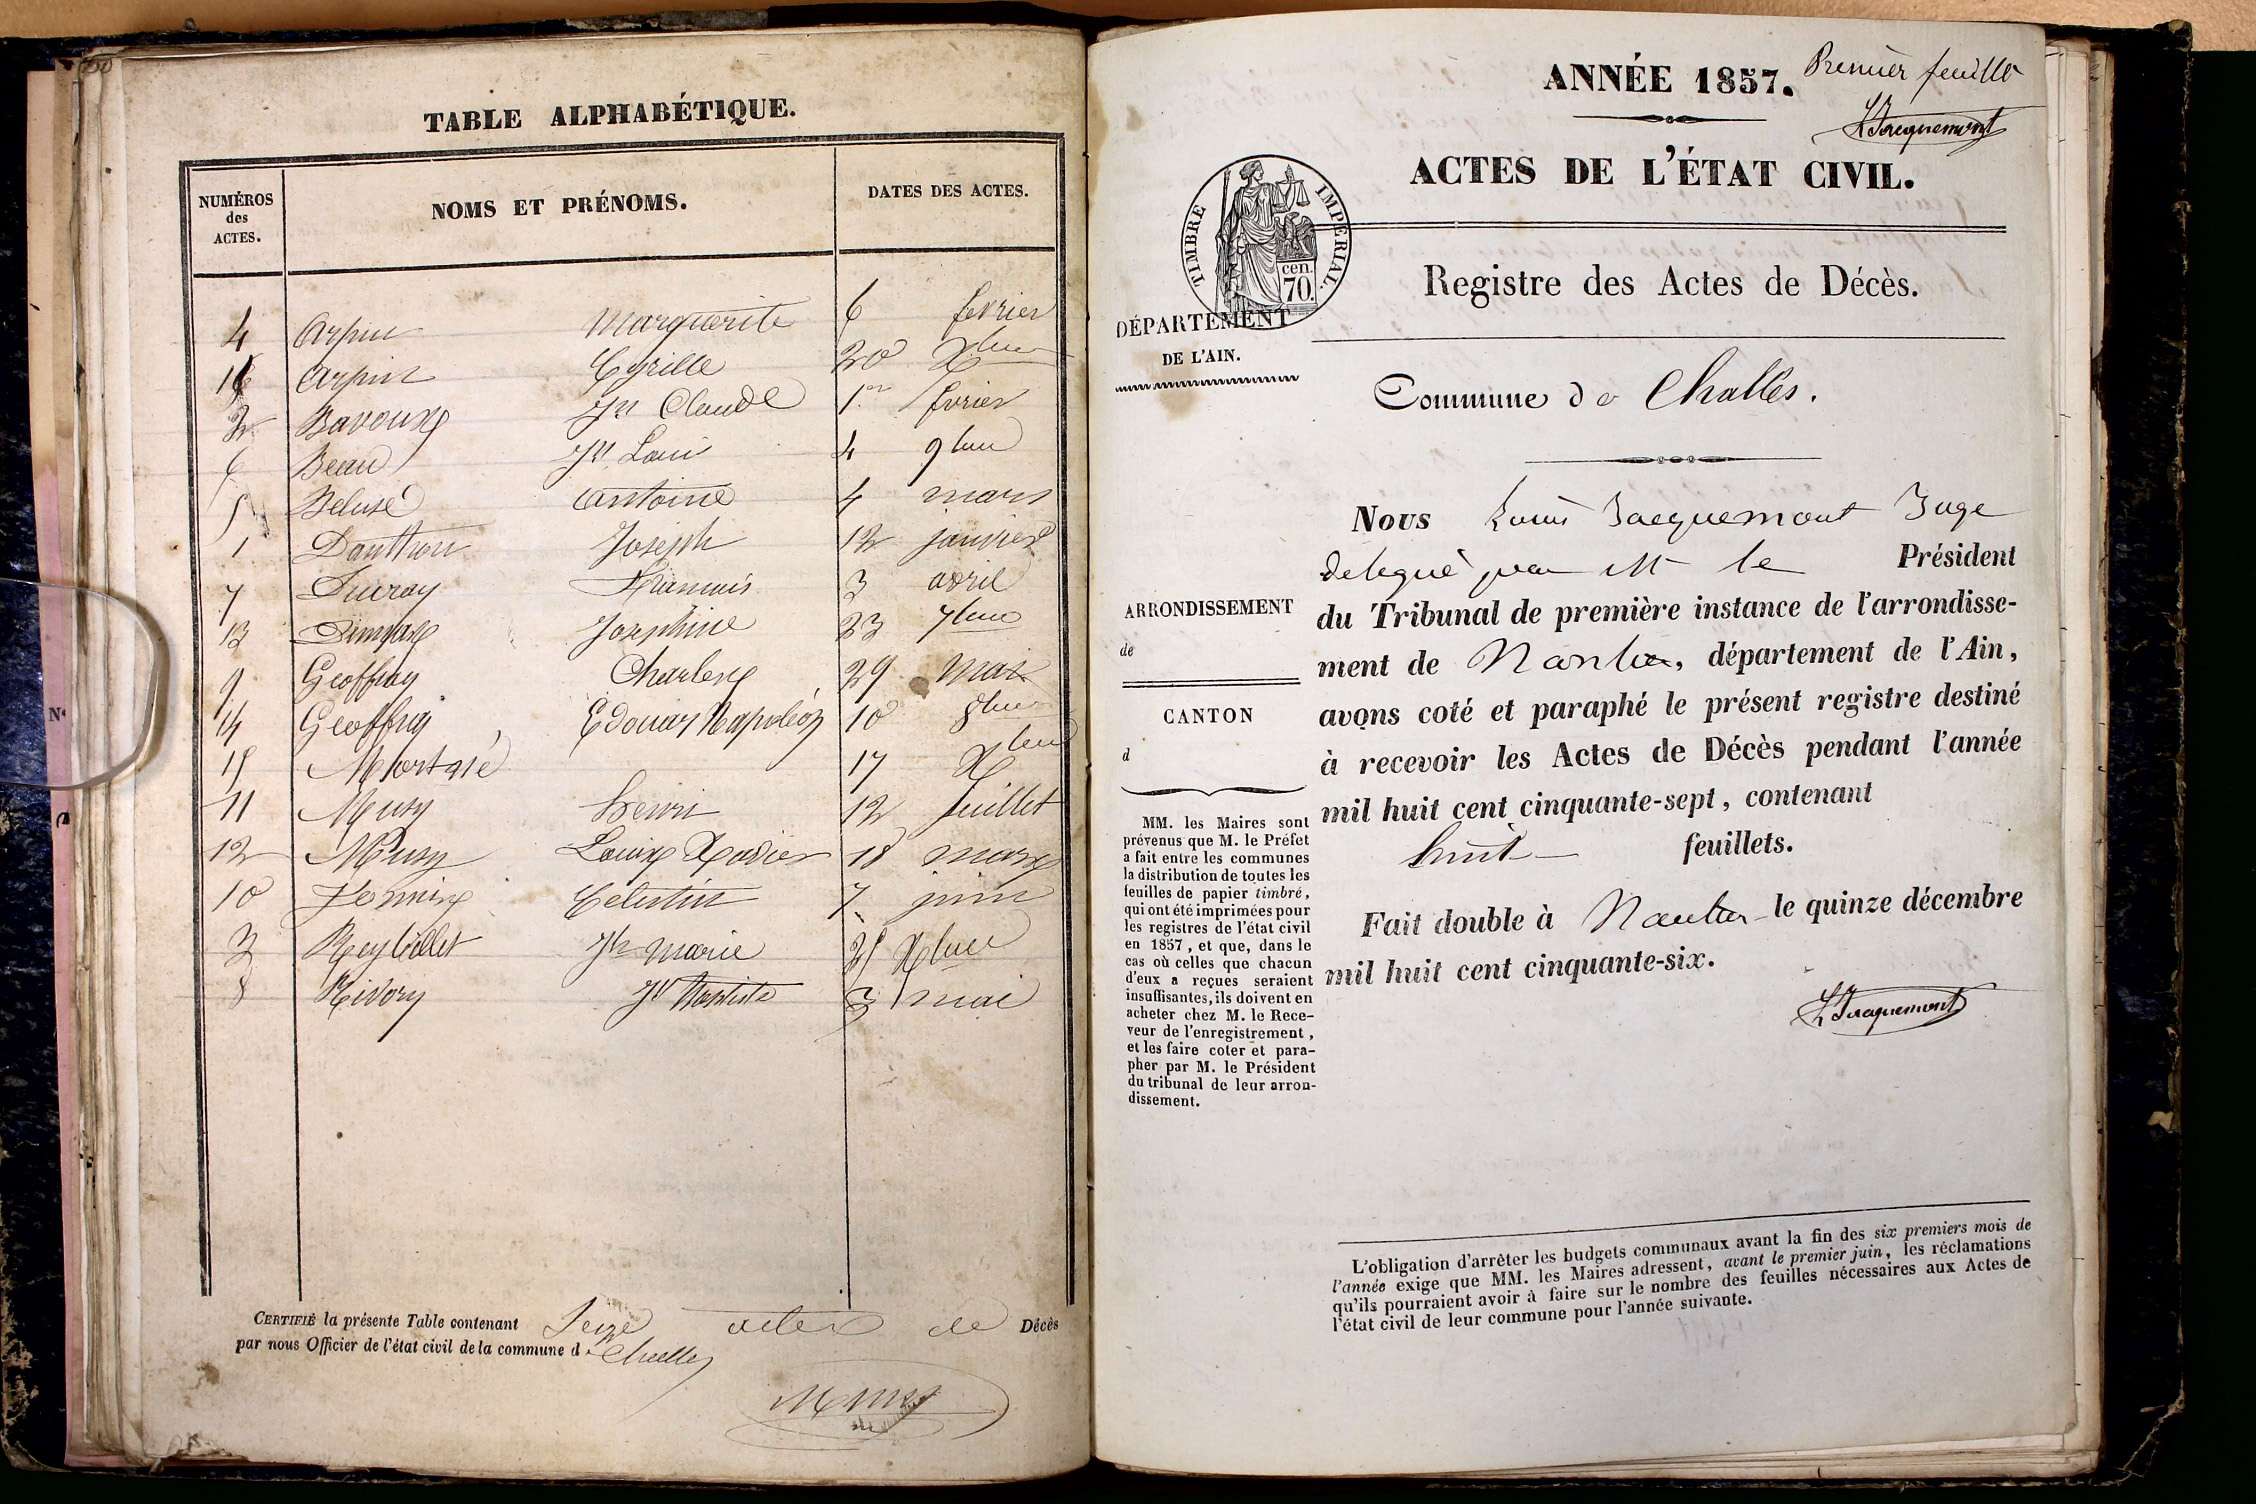 TABLE ALPHABÉTIQUE.
NUMÉROS des ACTES. NOMS ET PRÉNOMS. DATES DES ACTES.
4 Arpin Marguerite 6 fevrier
16 Arpin Cyrille 20 Xbre
2 Bavoux Jh Claude 1er fevrier
6 Beau Jh Loui 4 9bre
5 Beluse Antoine 4 mars
1 Danthon Joseph 12 janvier
7 Ducray Francois 3 avril
13 Josephine 23 7bre
9 Geoffray Charles 29 Mai
14 Geoffray Edouar Napoléon 10 8bre
15 Mortné 17 Xbre
11 Musy henri 12 Juillet
12 Musy Louis Xavier 18 mars
10 Celestin 7 juin
3 Reybillet Jh Marie Xbre
8 Rivory Baptiste 3 mai
CERTIFIÉ la présente Table contenant Seize actes de Décès
par nous Officier de l'état civil de la commune d Challes
Musy
ANNÉE 1857. Premier feuille
LJacquemont
ACTES DE L'ÉTAT CIVIL.
TIMBRE IMPÉRIAL.
cen.
70.
Registre des Actes de Décès.
DÉPARTEMENT
DE L'AIN.
Commune de Challes.
Nous Louis Jacquemont Juge
delegué par M le Président
du Tribunal de première instance de l'arrondisse-
ment de Nantua, département de l'Ain,
avons coté et paraphé le présent registre destiné
à recevoir les Actes de Décès pendant l'année
mil huit cent cinquante-sept, contenant
huit feuillets.
Fait double à Nantua le quinze décembre
mil huit cent cinquante-six.
LJacquemont
ARRONDISSEMENT
de
CANTON
d
MM. les Maires sont
prévenus que M. le Préfet
a fait entre les communes
la distribution de toutes les
feuilles de papier timbré,
qui ont été imprimées pour
les registres de l'état civil
en 1857, et que, dans le
cas où celles que chacun
d'eux a reçues seraient
insuffisantes, ils doivent en
acheter chez M. le Rece-
veur de l'enregistrement,
et les faire coter et para-
pher par M. le Président
du tribunal de leur arron-
dissement.
L'obligation d'arrêter les budgets communaux avant la fin des six premiers mois de
l'année exige que MM. les Maires adressent, avant le premier juin, les réclamations
qu'ils pourraient avoir à faire sur le nombre des feuilles nécessaires aux Actes de
l'état civil de leur commune pour l'année suivante.